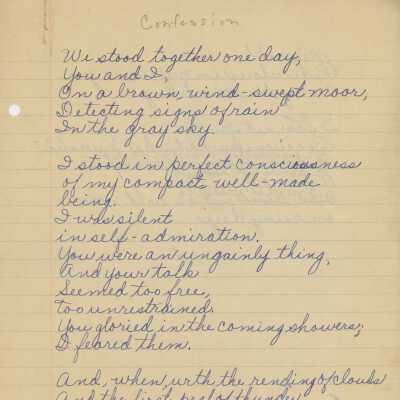 Confession
We stood together one day,
You and I,
On a brown, wind-swept moor,
Detecting signs of rain
In the gray sky.
I stood in perfect consciousness
of my compact, well-made
being.
I was silent
in self-admiration.
You were an ungainly thing,
And your talk
Seemed too free,
too unrestrained.
You gloried in the coming showers;
I feared them.
And, when, with the rending of clouds
And the first peal of thunder